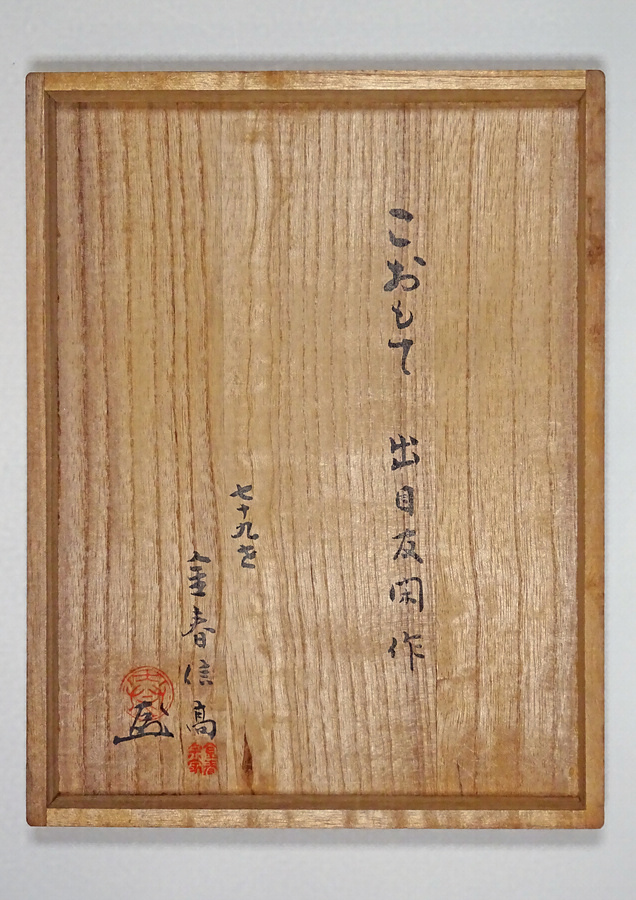 こおもて 出目友閑作
七十九世
金春信高